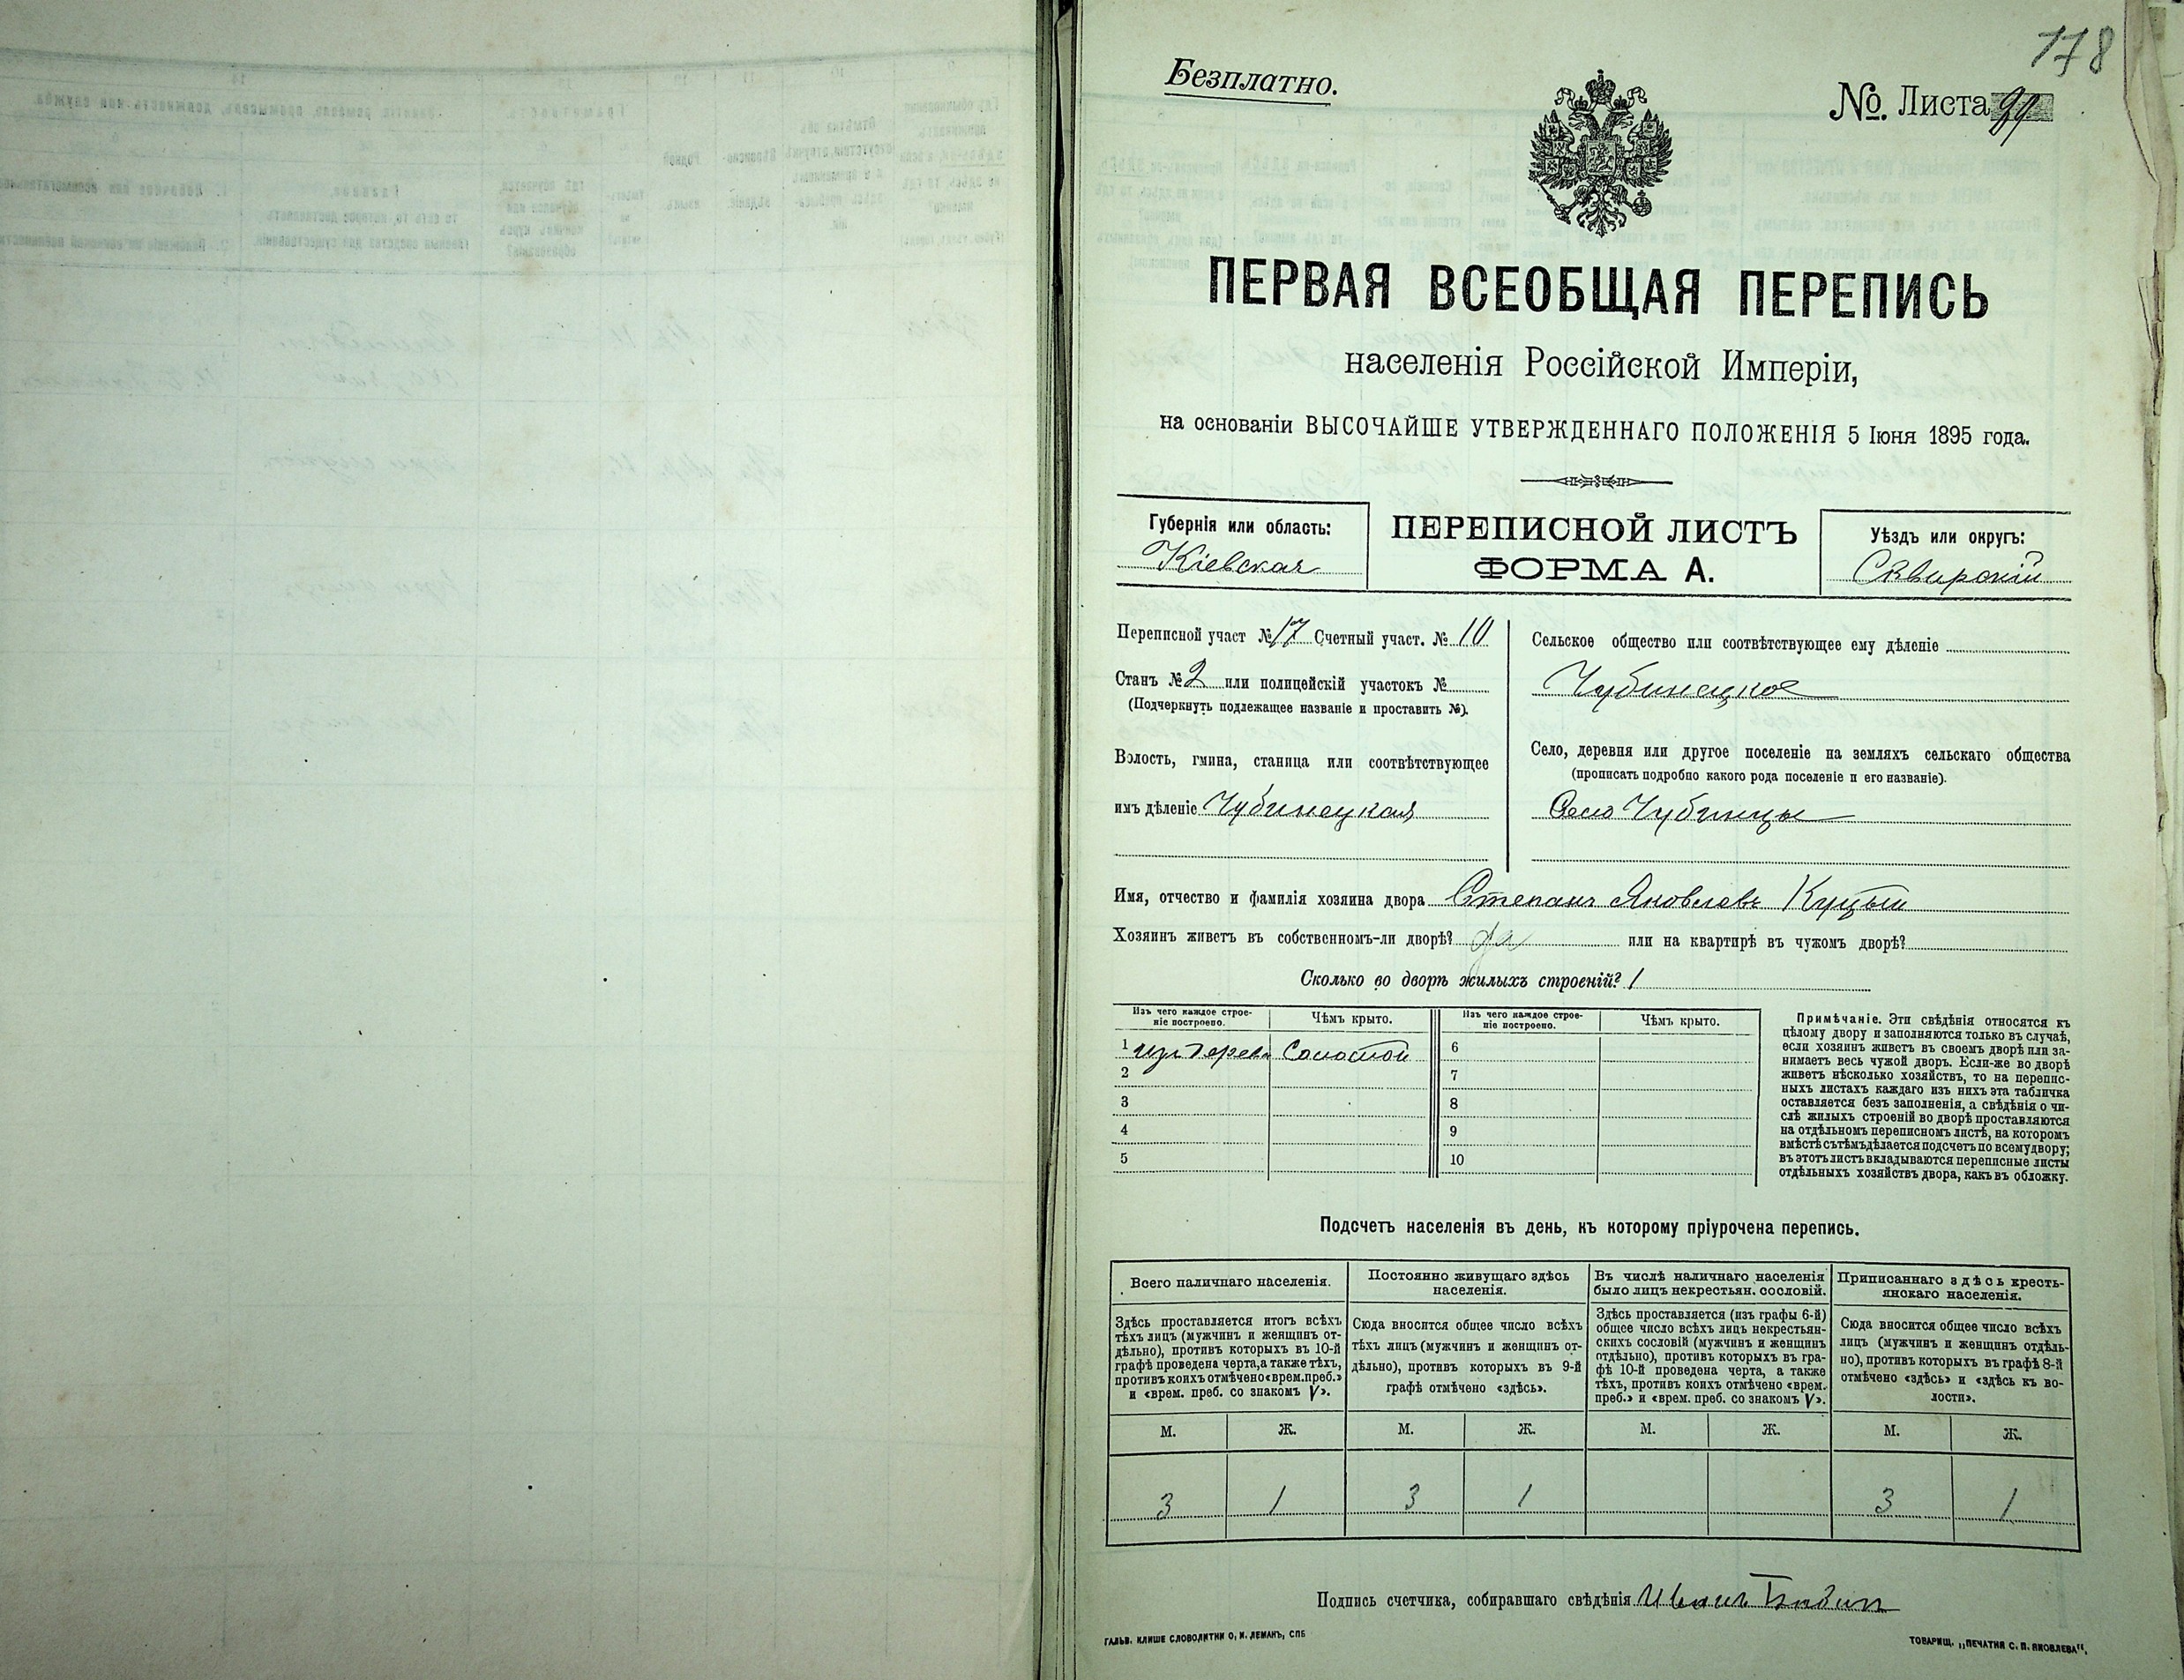 178
Безплатно.
№. Листа 99
ПЕРВАЯ ВСЕОБЩАЯ ПЕРЕПИСЬ
населенія Россійской Имперіи,
на основаніи ВЫСОЧАЙШЕ УТВЕРЖДЕННАГО ПОЛОЖЕНІЯ 5 Іюня 1895 года.
Губернія или область:
Кіевская
ПЕРЕПИСНОЙ ЛИСТЪ
ФОРМА А.
Уѣздъ или округъ:
Сквирскій
Переписной участ № 17 Счетный участ. № 10
Станъ № 2 или полицейскій участокъ №
(Подчеркнуть подлежащее названіе и проставить №).
Волость, гмина, станица или соотвѣтствующее
имъ дѣленіе Чубинецкая
Сельское общество или соотвѣтствующее ему дѣленіе
Чубинецкое
Село, деревня или другое поселеніе на земляхъ сельскаго общества
(прописать подробно какого рода поселеніе и его названіе).
Село Чубинцы
Имя, отчество и фамилія хозяина двора Степанъ Яковлевъ Куцый
Хозяинъ живетъ въ собственномъ-ли дворѣ? да или на квартирѣ въ чужомъ дворѣ?
Сколько во дворѣ жилыхъ строеній? 1
Изъ чего каждое строе-
ніе построено.
Чѣмъ крыто.
Изъ чего каждое строе-
ніе построено.
Чѣмъ крыто.
1 изъ дерева Соломой 6
2 7
3 8
4 9
5 10
Примѣчаніе. Эти свѣдѣнія относятся къ
цѣлому двору и заполняются только въ случаѣ,
если хозяинъ живетъ въ своемъ дворѣ или за-
нимаетъ весь чужой дворъ. Если-же во дворѣ
живетъ нѣсколько хозяйствъ, то на перепис-
ныхъ листахъ каждаго изъ нихъ эта табличка
оставляется безъ заполненія, а свѣдѣнія о чи-
слѣ жилыхъ строеній во дворѣ проставляются
на отдѣльномъ переписномъ листѣ, на которомъ
вмѣстѣ съ тѣмъ дѣлается подсчетъ по всему двору;
въ этотъ листъ вкладываются переписные листы
отдѣльныхъ хозяйствъ двора, какъ въ обложку.
Подсчетъ населенія въ день, къ которому пріурочена перепись.
Всего наличнаго населенія.
Здѣсь проставляется итогъ всѣхъ
тѣхъ лицъ (мужчинъ и женщинъ от-
дѣльно), противъ которыхъ въ 10-й
графѣ проведена черта, а также тѣхъ,
противъ коихъ отмѣчено «врем. преб.»
и «врем. преб. со знакомъ V».
Постоянно живущаго здѣсь
населенія.
Сюда вносится общее число всѣхъ
тѣхъ лицъ (мужчинъ и женщинъ от-
дѣльно), противъ которыхъ въ 9-й
графѣ отмѣчено «здѣсь».
Въ числѣ наличнаго населенія
было лицъ некрестьян. сословій.
Здѣсь проставляется (изъ графы 6-й)
общее число всѣхъ лицъ некрестьян-
скихъ сословій (мужчинъ и женщинъ
отдѣльно), противъ которыхъ въ гра-
фѣ 10-й проведена черта, а также
тѣхъ, противъ коихъ отмѣчено «врем.
преб.» и «врем. преб. со знакомъ V».
Приписаннаго здѣсь кресть-
янскаго населенія.
Сюда вносится общее число всѣхъ
лицъ (мужчинъ и женщинъ отдѣль-
но), противъ которыхъ въ графѣ 8-й
отмѣчено «здѣсь» и «здѣсь къ во-
лости».
М. Ж. М. Ж. М. Ж. М. Ж.
3 1 3 1 3 1
Подпись счетчика, собиравшаго свѣдѣнія Иванъ
ГАЛЬВ. КЛИШЕ СЛОВОЛИТНИ О. И. ЛЕМАНЪ, СПБ
ТОВАРИЩ. „ПЕЧАТНЯ С. П. ЯКОВЛЕВА".